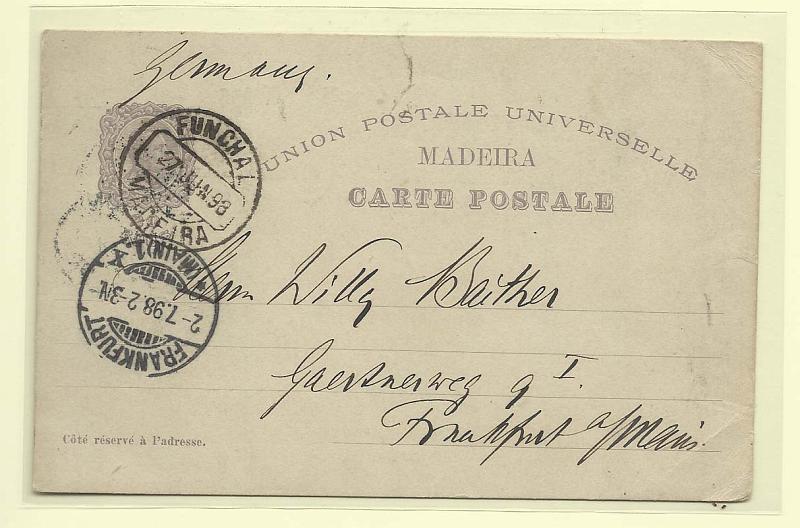 Germany.
UNION POSTALE UNIVERSELLE
MADEIRA
CARTE POSTALE
FUNCHAL
27 JUN. 98
MADEIRA
FRANKFURT (MAIN) 1. X
2-7.98.2-3N.
Herrn Willy
Gaertnerweg 9 I.
Frankfurt a/Main.
Côté réservé à l'adresse.